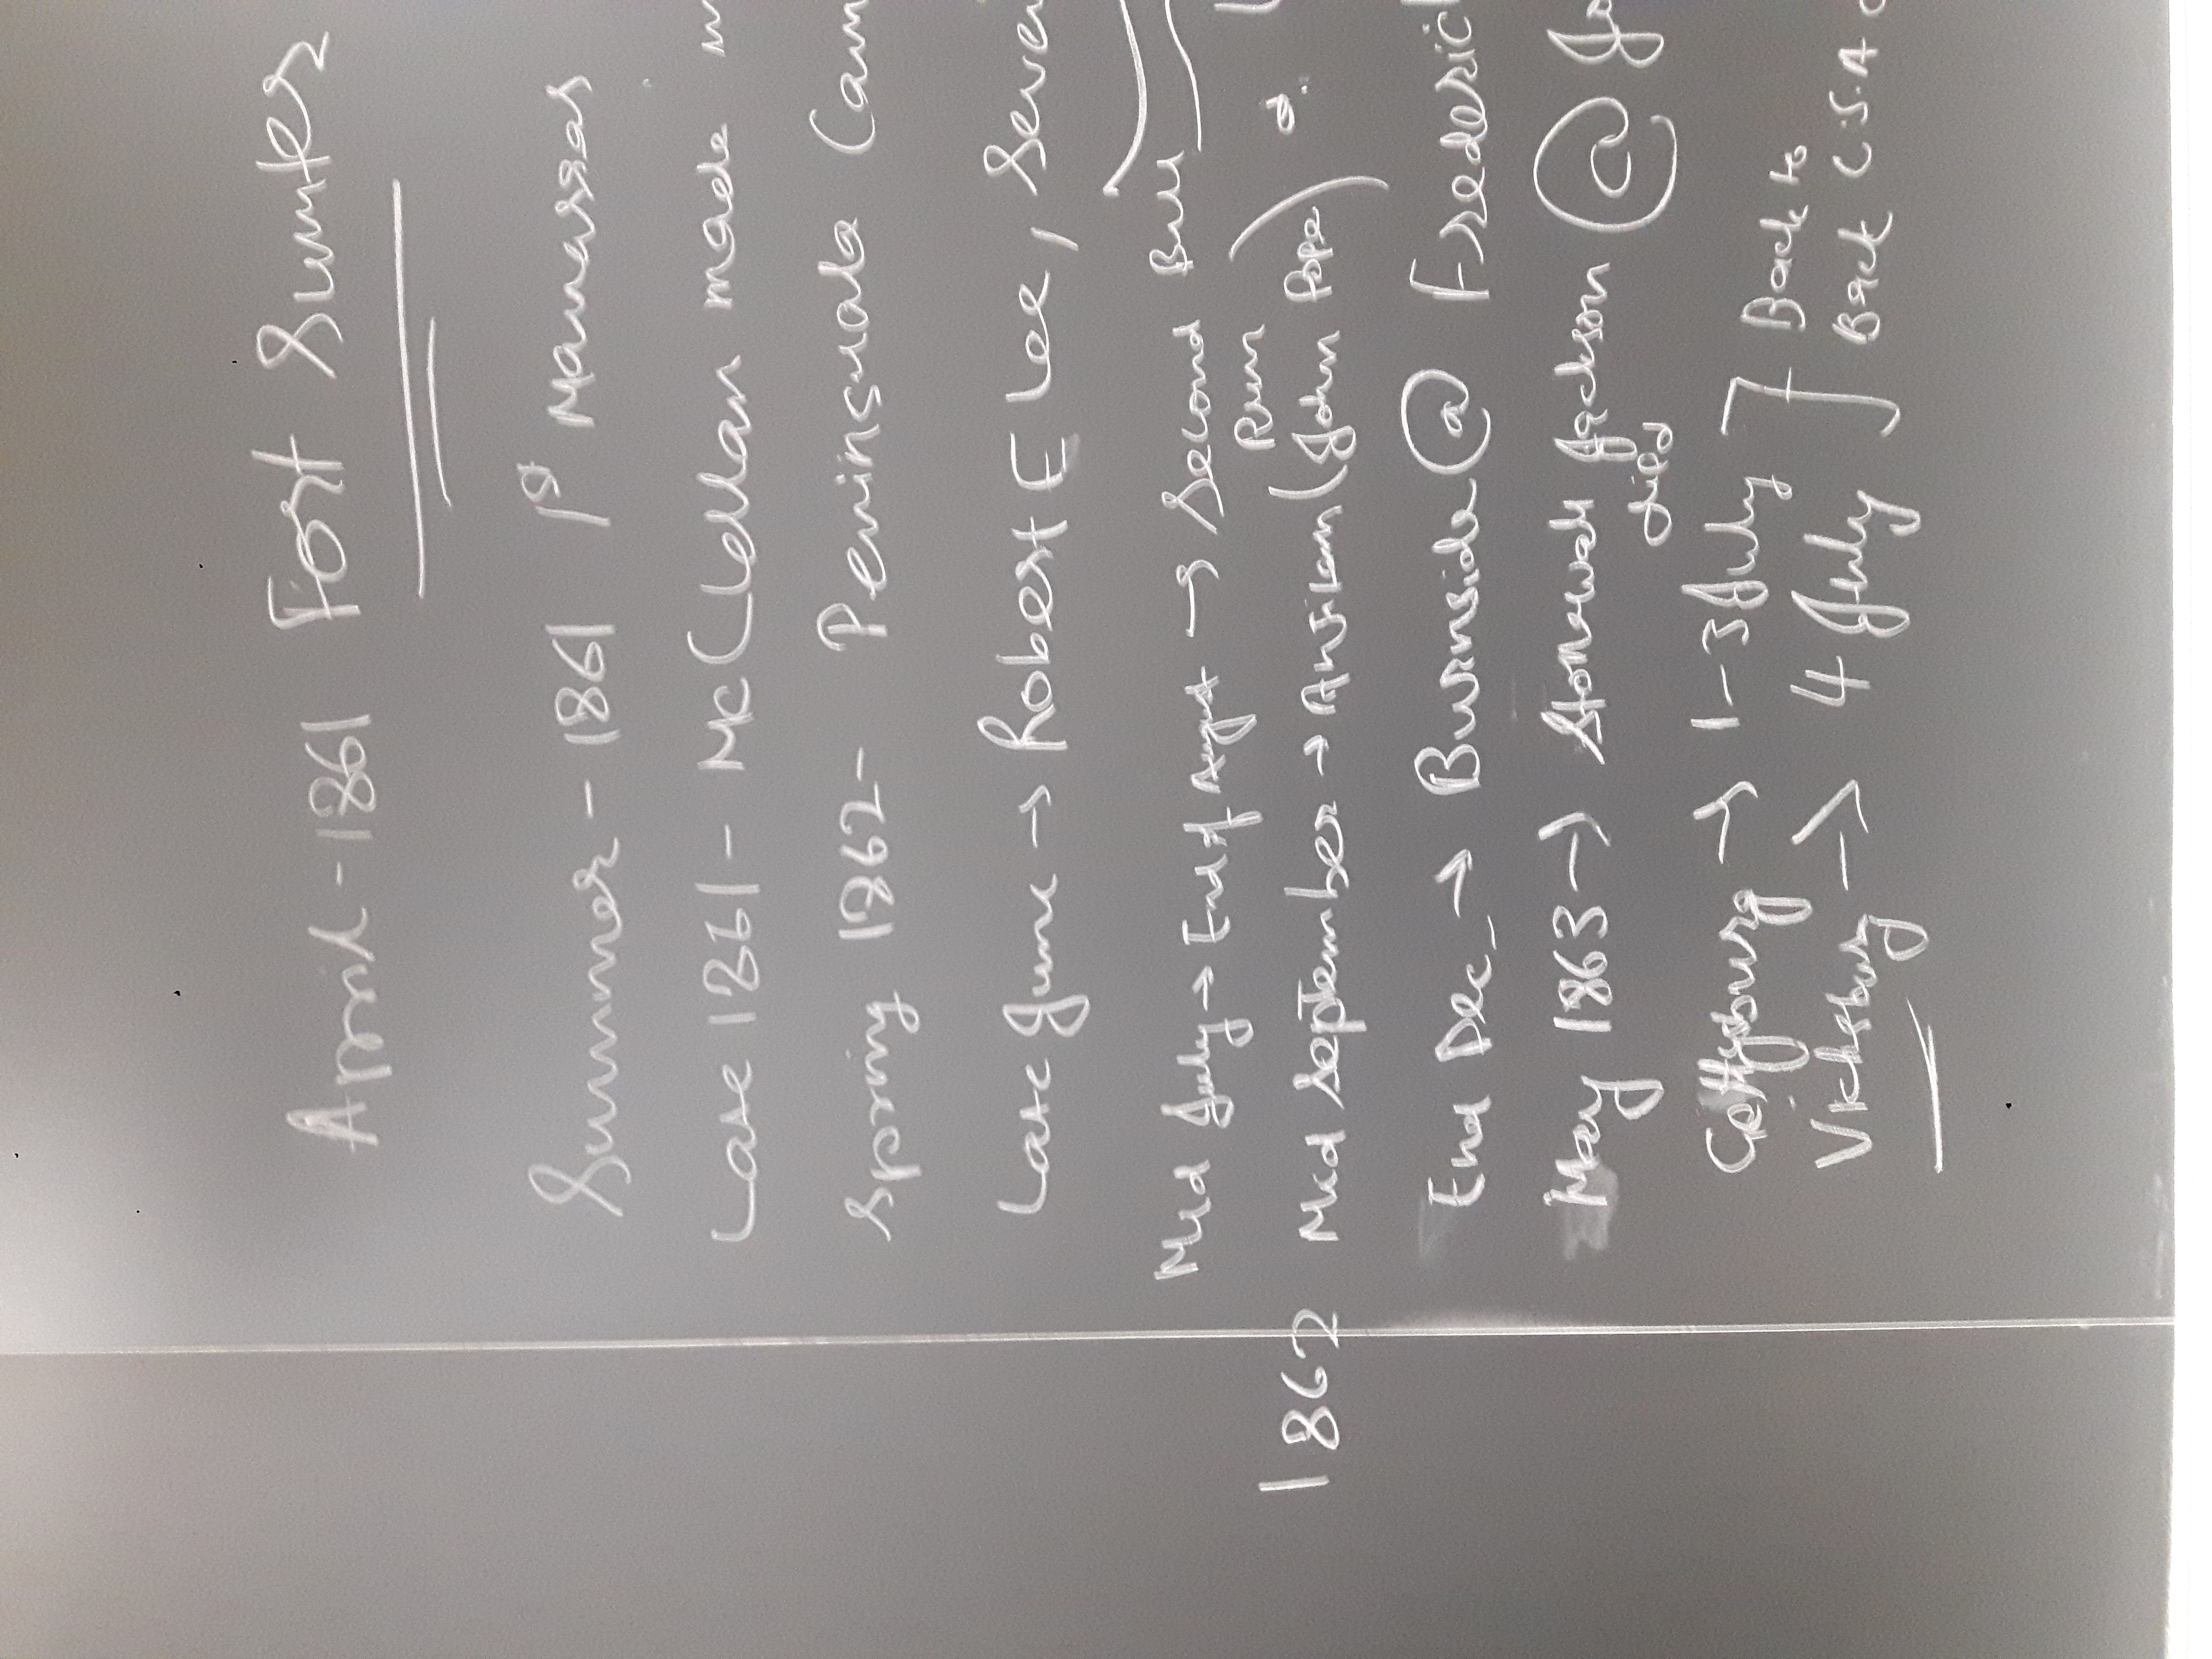 April - 1861 Fort Sumter
Summer - 1861 1st Manassas
Late 1861 - McClellan made
Spring 1862 - Peninsula Cam
Late June → Robert E Lee, Seve
Mid July → End of August → Second Bull
Run
1862 Mid September → Antitam (John Pope)
End Dec → Burnside @ Frederic
May 1863 → Stonewall Jackson @
died
Gettysburg → 1-3 July } Back to
Vicksburg → 4 July } Back C.S.A